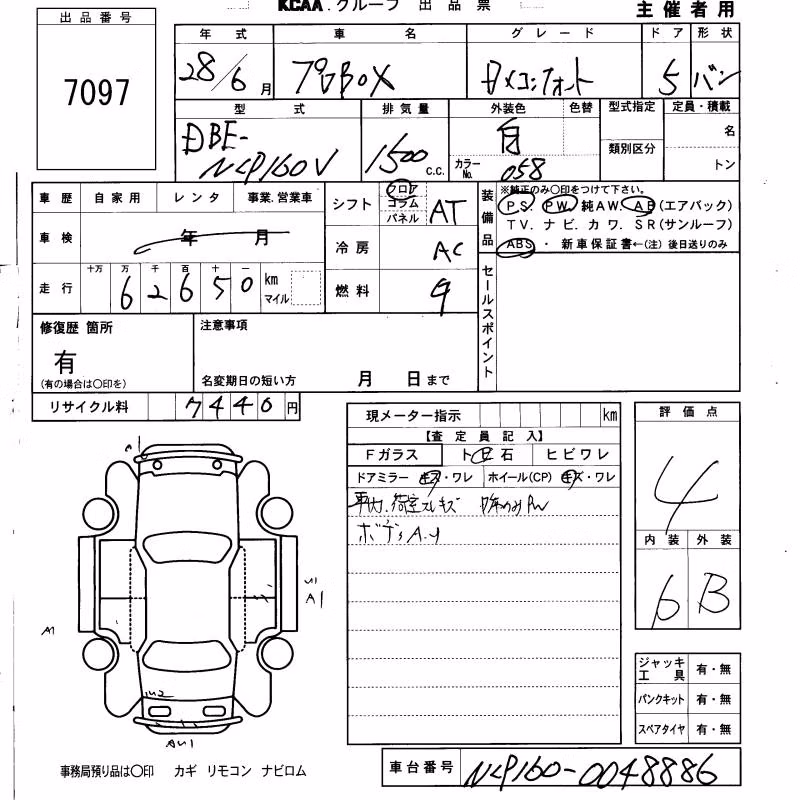 KCAA.グループ 出品票
主催者用
出品番号
7097
年式 車名 グレード ドア 形状
28/6月 プロBOX DXコンフォート 5 バン
型式 排気量 外装色 色替 型式指定 定員・積載
DBE-
NCP160V 1500 c.c. 白 カラーNo. 058 類別区分 名
トン
車歴 自家用 レンタ 事業.営業車
シフト フロア コラム パネル AT
装備品 ※純正のみ〇印をつけて下さい。
PS. PW. 純AW. AB(エアバック)
TV. ナビ. カワ. SR(サンルーフ)
ABS ・ 新車保証書←(注)後日送りのみ
車検 年 月
冷房 AC
走行 十万 万 千 百 十 一
62650 km マイル
燃料
セールスポイント
修復歴 箇所
有
(有の場合は〇印を)
注意事項
名変期日の短い方 月 日まで
リサイクル料 7440円
現メーター指示 km
評価点
4
【査定員記入】
Fガラス ト ビ 石 ヒビワレ
ドアミラー キズ・ワレ ホイール(CP) キズ・ワレ
内装 外装
6 B
A1
A1
AU1
ジャッキ 工具 有・無
パンクキット 有・無
スペアタイヤ 有・無
車台番号 NCP160-0048886
事務局預り品は〇印 カギ リモコン ナビロム